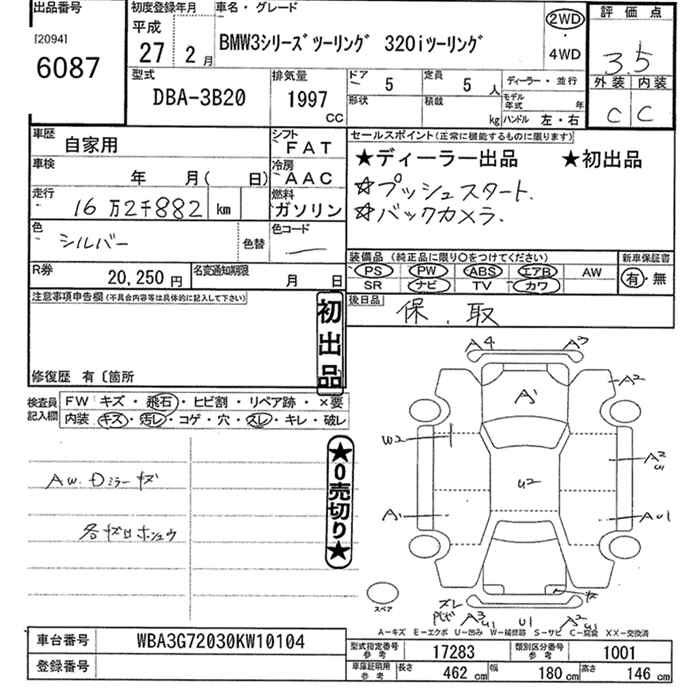 出品番号
[2094]
6087
初度登録年月
平成
27 2月
車名・グレード
BMW3シリーズツーリング 320iツーリング
2WD
・
4WD
評価点
3.5
外装 内装
C C
型式
DBA-3B20
排気量
1997
CC
ドア
5
定員
5 人
形状
積載
kg
ディーラー・並行
モデル年式 年
ハンドル 左・右
車歴
自家用
シフト
FAT
車検
年 月( 日)
冷房
AAC
走行
16万2千882 km
燃料
ガソリン
色
シルバー
色替
色コード
R券
20,250円
名変通知期限
月 日
セールスポイント(正常に機能するものに限ります)
★ディーラー出品 ★初出品
☆プッシュスタート.
☆バックカメラ.
装備品(純正品に限り○をつけてください)
PS PW ABS エアB AW
SR ナビ TV カワ
新車保証書
有・無
後日品
保.取
注意事項申告欄(不具合内容等は具体的に記入して下さい)
初出品
修復歴 有〔箇所
検査員記入欄
FW キズ・飛石・ヒビ割・リペア跡・×要
内装 キズ・汚レ・コゲ・穴・スレ・キレ・破レ
AW.Dミラーキズ
各キズ
★0売切り★
A4 A3
A2
A1
W2
A2
U1
U2
A1
AU1
スレ
A3
U1
U1
A2
U1
スペア
A－キズ E－エクボ U－凹み W－補修跡 S－サビ C－腐食 XX－交換済
車台番号
WBA3G72030KW10104
登録番号
型式指定番号 参考
17283
類別区分番号 参考
1001
車庫証明用 参考
長さ 462 cm 幅 180 cm 高さ 146 cm